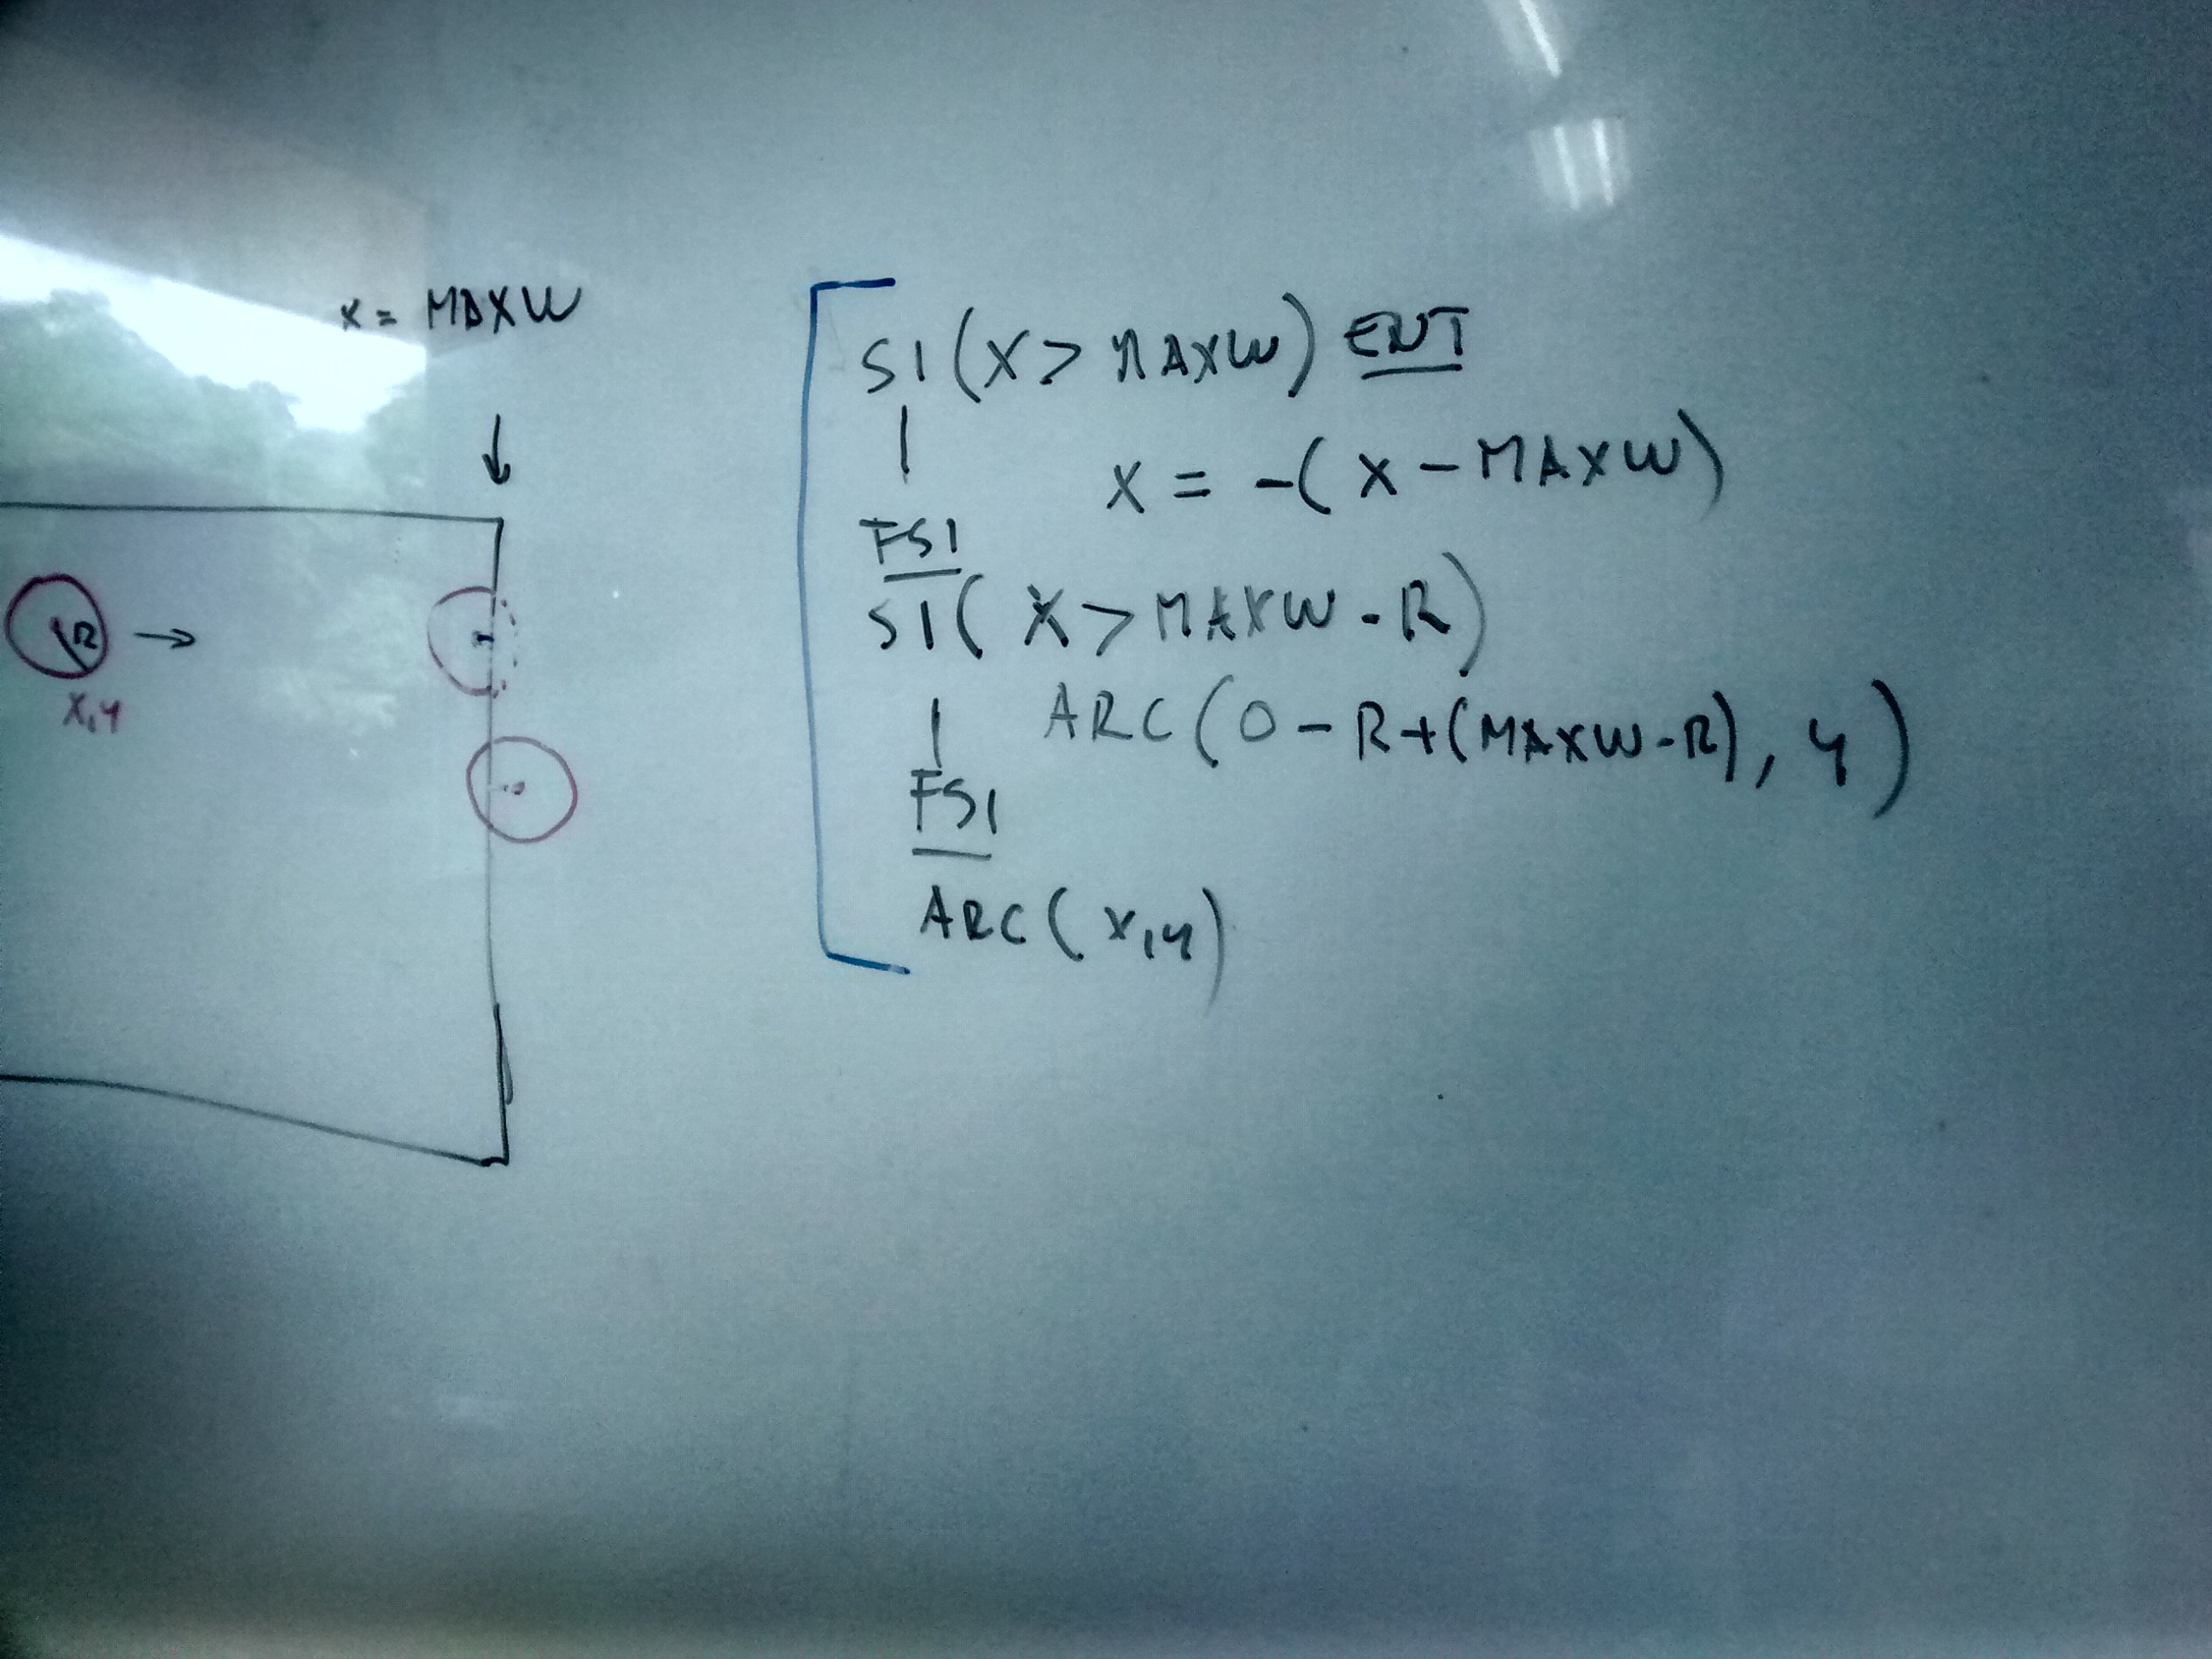 x = MAXW
R
x,y
SI (X > MAXW) ENT
X = -( X - MAXW)
FSI
SI ( X > MAXW - R)
ARC ( 0 - R + (MAXW - R), y )
FSI
ARC ( x,y)